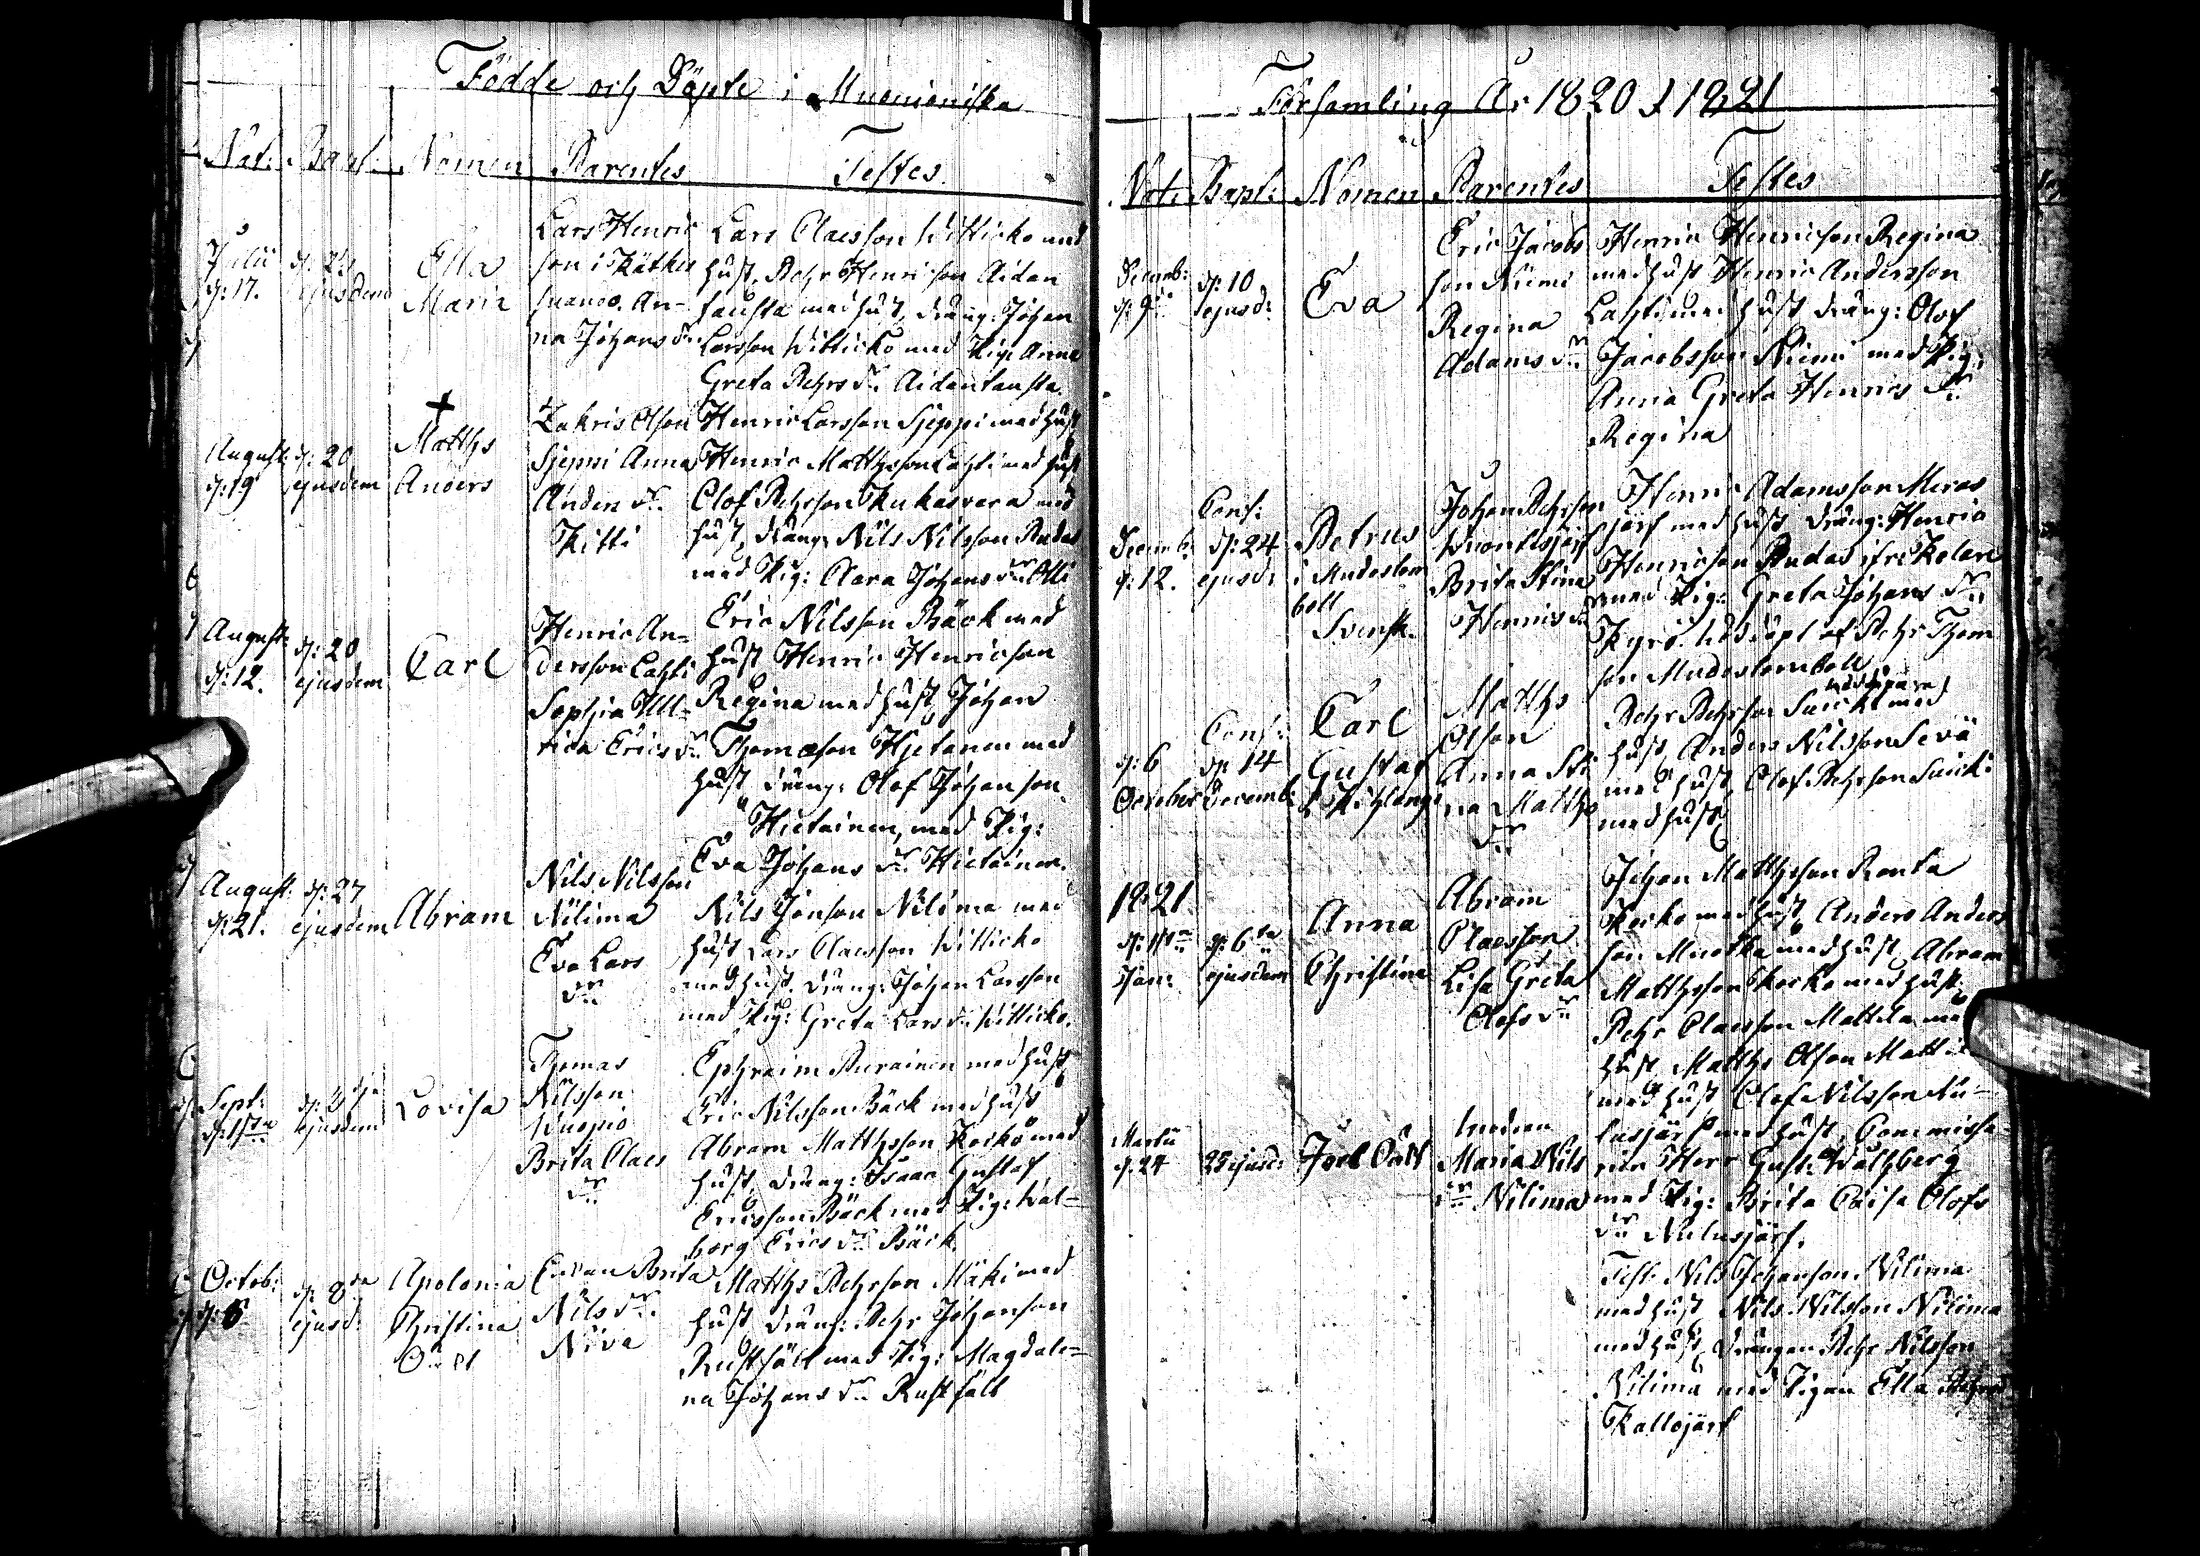 Födde och Döpte i Muonioniska
Nat: Bapt: Nomen Parentes Testes
Julii d: 17. d: 24 ejusdem
Ella Maria
Lars Henric
son i Kätke
suando. An-
na Johans dr.
Lars Claesson Witticko med
hust, Pehr Henricson Aidan
tausta med hust, dräng: Johan
Larsson Witticko med Pig: Anna
Greta Pehrs dr. Aidantausta.
August. d: 19 d: 20 ejusdem
Matths
Anders
Zakris Olsson
Sjeppi Anna
Anders dr.
Kitti
Henric Larsson Sjeppi med hust
Henric Matthsson Lahti med hust
Olof Pehrsson Kukasvara med
hust, dräng: Nils Nilsson Rudas
med Pig: Clara Johans dr. Olli
August. d: 12. d: 20 ejusdem
Carl
Henric An-
dersson Lahti
Sophia Ull-
rica Erics dr.
Eric Nilsson Bäck med
hust Henric Henricson
Regina med hust, Johan
Thomasson Hjetanen med
hust dräng: Olof Johansson
Hietainen, med Pig:
Eva Johans dr. Hietainen.
August. d: 21. d: 27 ejusdem
Abram
Nils Nilsson
Nilima
Eva Lars
dr.
Nils Jonson Nilima med
hust Lars Claesson Witticko
med hust. dräng: Johan Larsson
med Pig: Greta Lars dr. Witticko.
Sept:
ejusdem
Lovisa
Thomas
Nilsson
Kuopio
Brita Claes
dr.
Ephraim Purainen med hust
Eric Nilsson Bäck med hust
Abram Matthsson Korko med
hust, dräng: Isaac Gustaf
Ericsson Bäck med Pig: Wal-
borg Erics dr. Bäck.
Octob: d: 6 d: 8de ejusd:
Apolonia
Christina
Brita
Nils dr.
Niva
Matths Pehrson Mäki med
hust dräng: Pehr Johanson
Rustfält med Pig: Magdale-
na Johans dr. Rustfält
Församling År 1820 & 1821
Nat: Bapt: Nomen Parentes Testes
Decemb: d: 9 d: 10 ejusd:
Eva
Eric Jacobs
son Niemi
Regina
Adams dr.
Henric Henricson Regina
med hust Henric Andersson
Lahti med hust dräng: Olof
Jacobsson Niemi med Pig:
Anna Greta Henrics dr.
Regina
Decemb. d: 12. Conf: d: 24 ejusd:
Petrus
i Mudoslom
boll
Svensk.
Johan Pehrson
Brita Stina
Henrics dr
Henric Adamsson Meras
järf med hust dräng: Henric
Henricson Rudas ifr: Kolare
med Pig: Greta Johans dr:
Kyrö. döpt af Pehr Thom
son Mudoslomboll
d: 6 October Conf: d: 14 Decemb:
Carl
Gustaf
Kihlangi
Matths
Olson
Anna Sti
na Matths
dr.
Pehr Pehrson Suick: med
hust Anders Nilsson Sevä
med hust, Olof Pehrson Suick:
med hust
1821
Jan: d: 6te ejusdem
Anna
Christina
Abram
Claesson
Lisa Greta
Olofs dr
Johan Matthsson Ronta
Korko med hust Anders Anders
son Muotka med hust, Abram
Matthsson Korko med hust.
Pehr Claesson Mattila med
hust Matths Olson
med hust Olof Nilsson Nu-
lusjärf med hust. Commissa-
rien Herr Gust: Wahlberg
med Pig: Brita Caisa Olofs
dr Nulusjärf.
Martii d: 24 25 ejusd:
Joel
Modren
Maria Nils
dr. Nilima
Test. Nils Johansson Nilima
med hust Nils Nilsson Nilima
med hust, drängen Pehr Nilsson
Nilima med Pigan Ella
Kallojärf